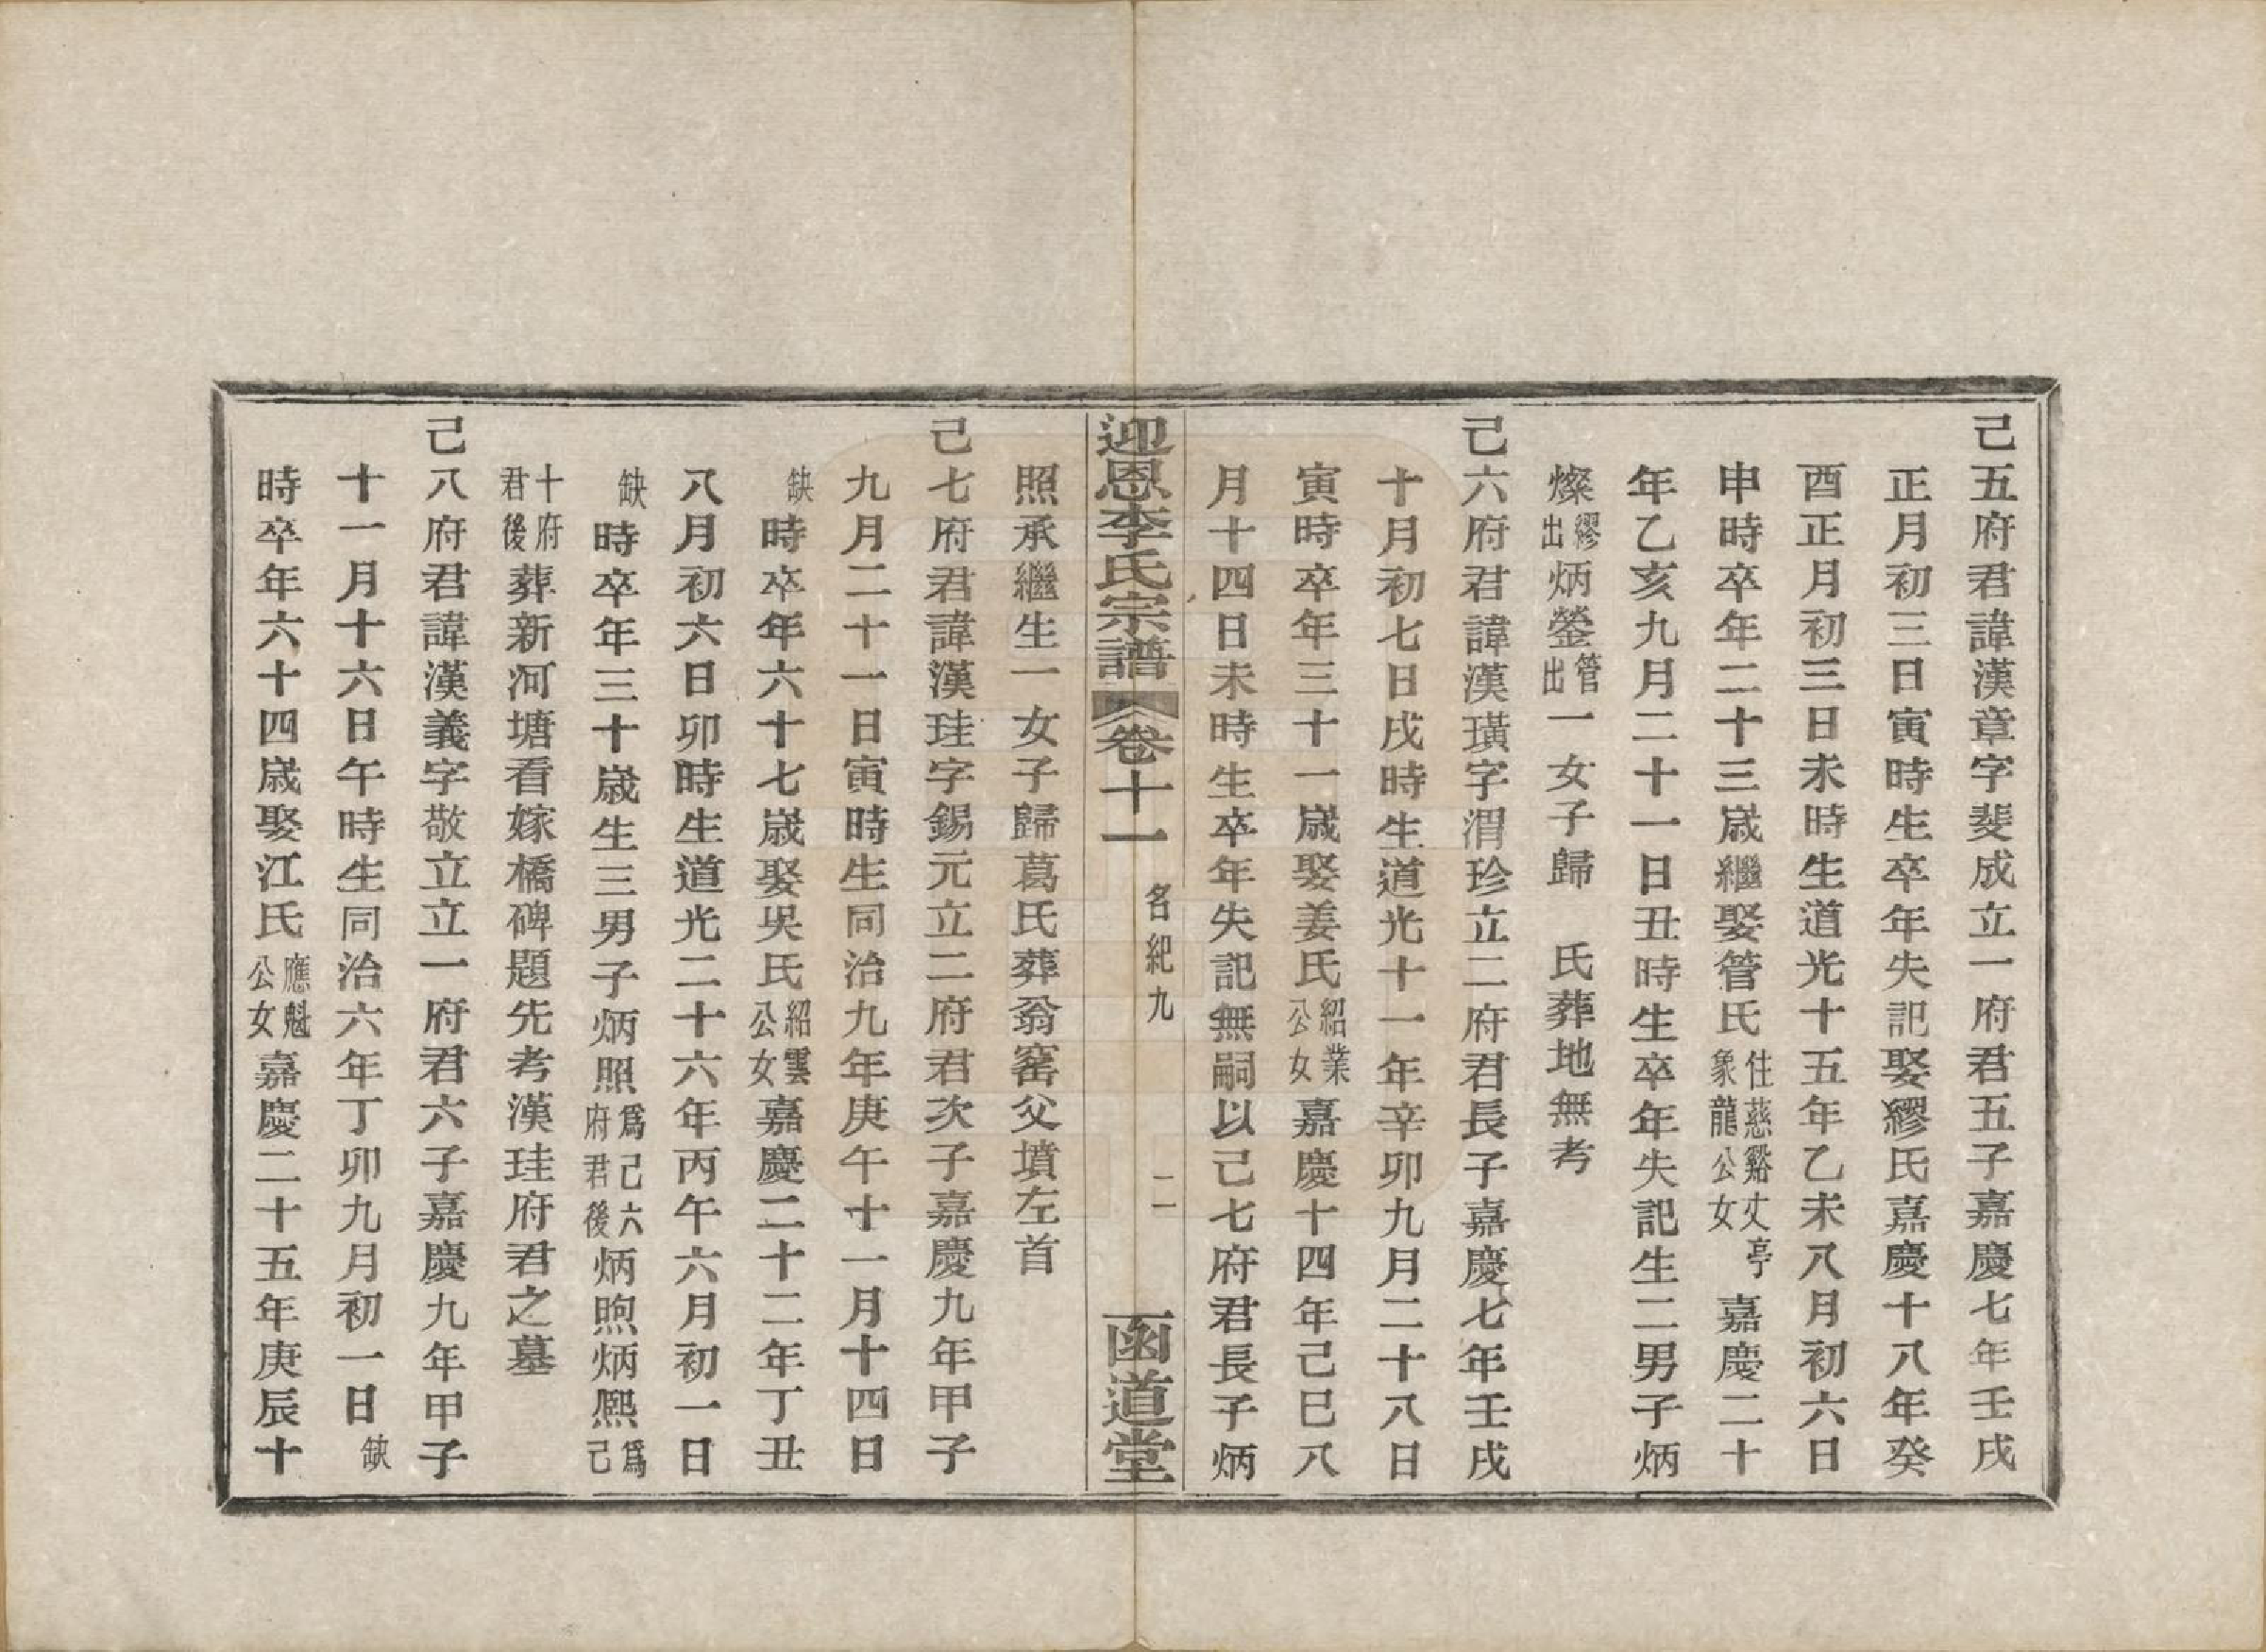 己五府君諱漢章字斐成立一府君五子嘉慶七年壬戌
正月初三日寅時生卒年失記娶繆氏嘉慶十八年癸
酉正月初三日未時生道光十五年乙未八月初六日
申時卒年二十三歲繼娶管氏住慈谿丈亭象龍公女嘉慶二十
年乙亥九月二十一日丑時生卒年失記生二男子炳
燦繆出炳鎣管出一女子歸　氏葬地無考
己六府君諱漢璜字渭珍立二府君長子嘉慶七年壬戌
十月初七日戌時生道光十一年辛卯九月二十八日
寅時卒年三十一歲娶姜氏紹業公女嘉慶十四年己巳八
月十四日未時生卒年失記無嗣以己七府君長子炳
迎恩李氏宗譜 卷十一 名紀九 二 函道堂
照承繼生一女子歸葛氏葬翁窰父墳左首
己七府君諱漢珪字錫元立二府君次子嘉慶九年甲子
九月二十一日寅時生同治九年庚午十一月十四日
缺時卒年六十七歲娶吳氏紹雲公女嘉慶二十二年丁丑
八月初六日卯時生道光二十六年丙午六月初一日
缺時卒年三十歲生三男子炳照爲己六府君後炳煦炳熙爲己
十府君後葬新河塘看嫁橋碑題先考漢珪府君之墓
己八府君諱漢義字敬立立一府君六子嘉慶九年甲子
十一月十六日午時生同治六年丁卯九月初一日缺
時卒年六十四歲娶江氏應魁公女嘉慶二十五年庚辰十